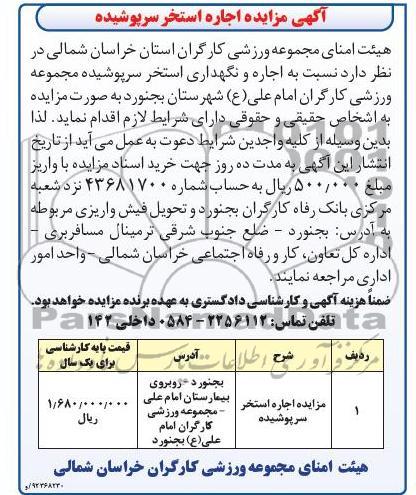 آگهی مزایده اجاره استخر سرپوشیده
هیئت امنای مجموعه ورزشی کارگران استان خراسان شمالی در
نظر دارد نسبت به اجاره و نگهداری استخر سرپوشیده مجموعه
ورزشی کارگران امام علی(ع) شهرستان بجنورد به صورت مزایده
به اشخاص حقیقی و حقوقی دارای شرایط لازم اقدام نماید. لذا
بدین وسیله از کلیه واجدین شرایط دعوت به عمل می آید از تاریخ
انتشار این آگهی به مدت ده روز جهت خرید اسناد مزایده با واریز
مبلغ ۵۰۰/۰۰۰ ریال به حساب شماره ۴۳۶۸۱۷۰۰ نزد شعبه
مرکزی بانک رفاه کارگران بجنورد و تحویل فیش واریزی مربوطه
به آدرس: بجنورد - ضلع جنوب شرقی ترمینال مسافربری -
اداره کل تعاون، کار و رفاه اجتماعی خراسان شمالی - واحد امور
اداری مراجعه نمایند.
ضمناً هزینه آگهی و کارشناسی دادگستری به عهده برنده مزایده خواهد بود.
تلفن تماس: ۲۲۵۶۱۱۲ - ۰۵۸۴ داخلی ۱۴۲
ردیف شرح آدرس قیمت پایه کارشناسی برای یک سال
۱ مزایده اجاره استخر سرپوشیده
بجنورد - روبروی
بیمارستان امام علی
- مجموعه ورزشی
کارگران امام
علی(ع) بجنورد
۱/۶۸۰/۰۰۰/۰۰۰
ریال
هیئت امنای مجموعه ورزشی کارگران خراسان شمالی
۹۲۳۶۸۲۳۰/و